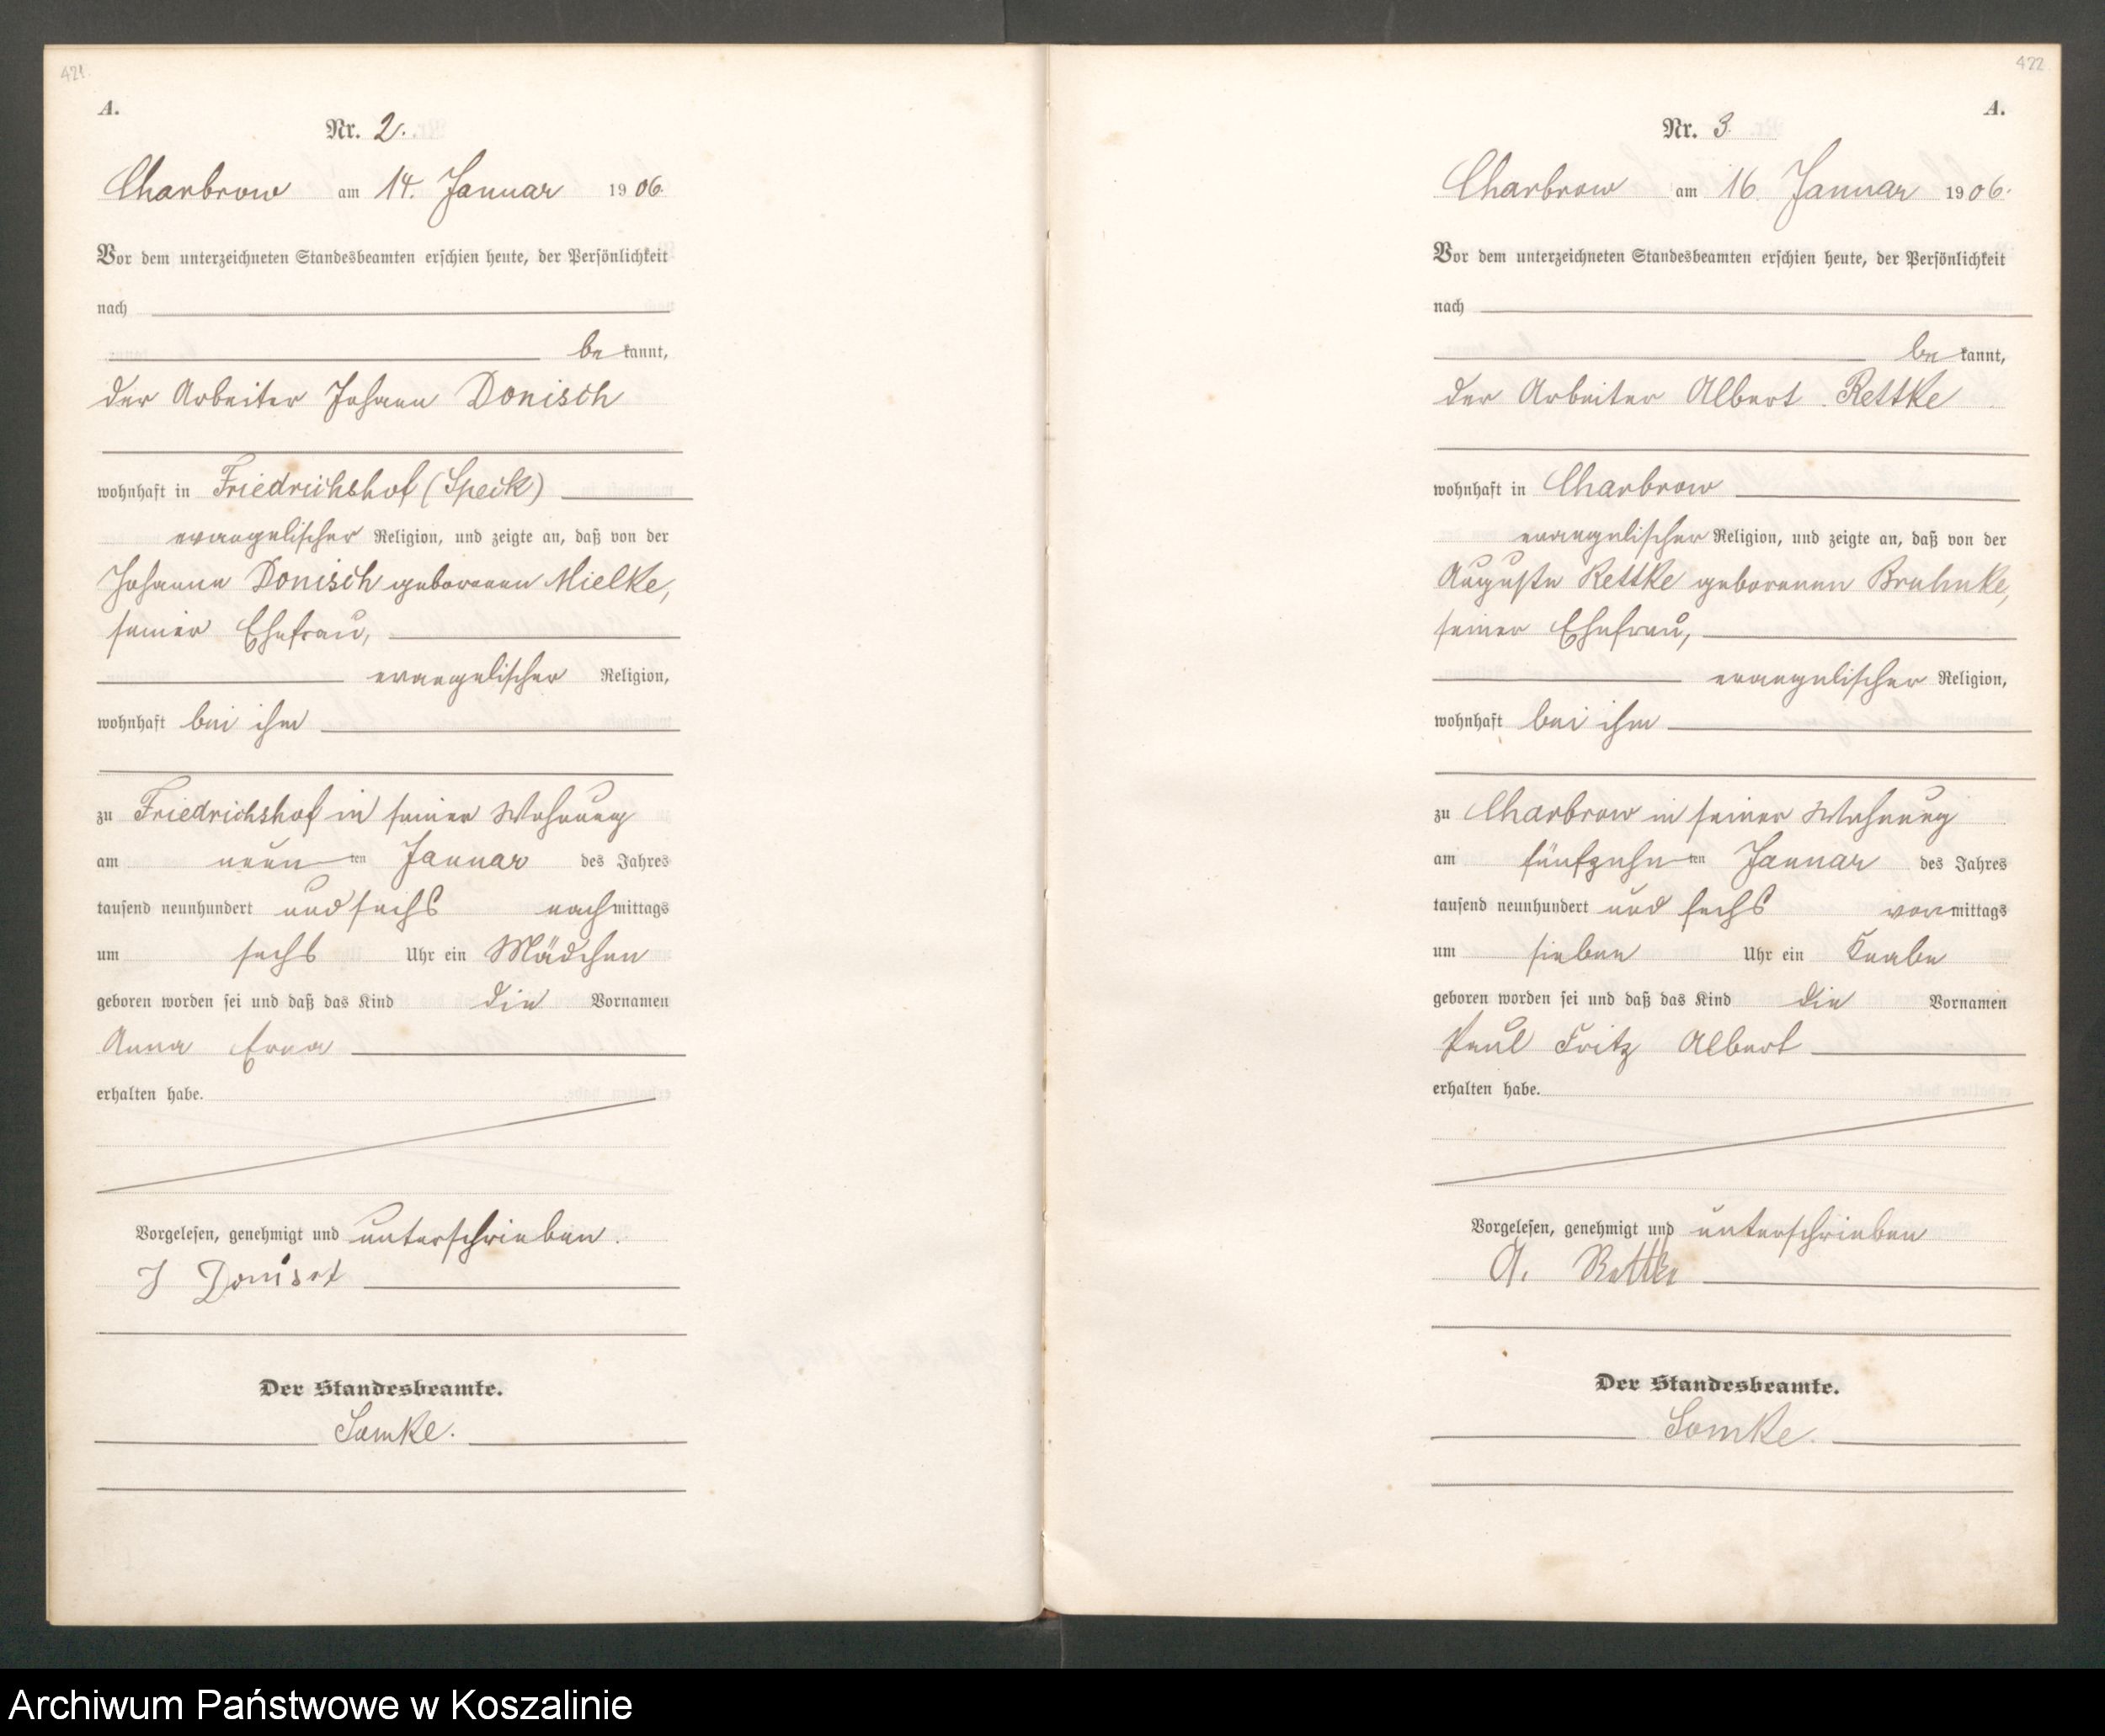 421.
A.
Nr. 2.
Charbrow am 14. Januar 1906.
Vor dem unterzeichneten Standesbeamten erschien heute, der Persönlichkeit
nach
bekannt,
der Arbeiter Johann Donisch
wohnhaft in Friedrichshof (Speck)
evangelischer Religion, und zeigte an, daß von der
Johanna Donisch geborenen Mielke,
seiner Ehefrau,
evangelischer Religion,
wohnhaft bei ihm
zu Friedrichshof in seiner Wohnung
am neunten Januar des Jahres
tausend neunhundert und sechs nachmittags
um sechs Uhr ein Mädchen
geboren worden sei und daß das Kind die Vornamen
Anna Erna
erhalten habe.
Vorgelesen, genehmigt und unterschrieben.
J Donisch
Der Standesbeamte.
Samke.
422
A.
Nr. 3.
Charbrow am 16. Januar 1906.
Vor dem unterzeichneten Standesbeamten erschien heute, der Persönlichkeit
nach
bekannt,
der Arbeiter Albert Rettke
wohnhaft in Charbrow
evangelischer Religion, und zeigte an, daß von der
Auguste Rettke geborenen Bruhnke,
seiner Ehefrau,
evangelischer Religion,
wohnhaft bei ihm
zu Charbrow in seiner Wohnung
am fünfzehnten Januar des Jahres
tausend neunhundert und sechs vormittags
um sieben Uhr ein Knabe
geboren worden sei und daß das Kind die Vornamen
Paul Fritz Albert
erhalten habe.
Vorgelesen, genehmigt und unterschrieben
A. Rettke
Der Standesbeamte.
Samke.
Archiwum Państwowe w Koszalinie